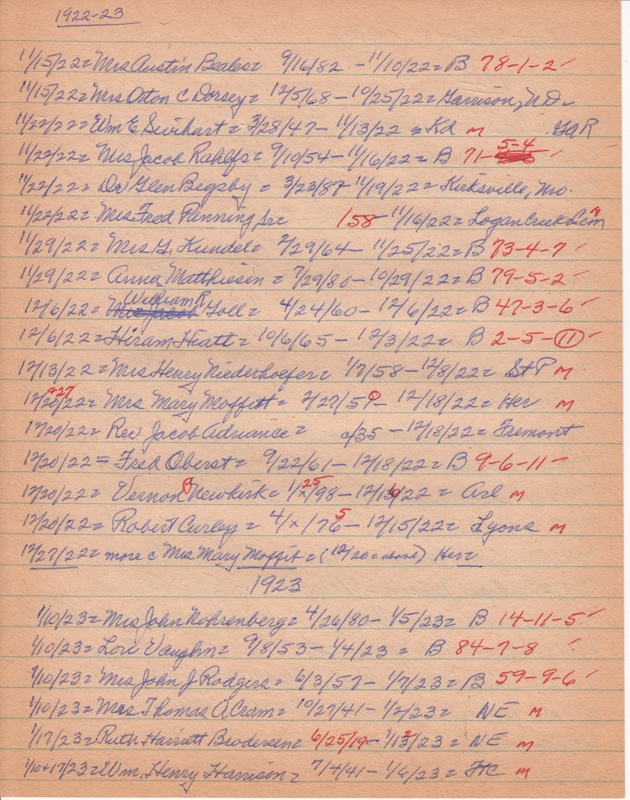 1922-23
11/15/22 = Mrs Austin Beales = 9/16/82 - 11/10/22 = B 78-1-2 ✓
11/15/22 = Mrs Orton C Dorsey = 12/5/68 - 10/25/22 = Garrison, ND ✓
11/22/22 = Wm E Swihart = 3/28/47 - 11/13/22 = Kd m GAR
11/22/22 = Mrs Jacob Rahlfs = 9/10/54 - 11/16/22 = B 71-5-4 ✓
11/22/22 = Dr Glen Bigsby = 3/23/87 - 11/19/22 = Kirksville, Mo.
11/22/22 = Mrs Fred Panning, Sr = 158 - 11/16/22 = Logan Creek Cem m
11/29/22 = Mrs G. Kundel = 2/29/64 - 11/25/22 = B 73-4-7 ✓
11/29/22 = Anna Matthiesen = 7/29/80 - 10/29/22 = B 79-5-2 ✓
12/6/22 = William R Foll = 4/24/60 - 12/6/22 = B 47-3-6 ✓
12/6/22 = Hiram Hiatt = 10/6/65 - 12/3/22 = B 2-5-11 ✓
12/13/22 = Mrs Henry Niederhoefer = 1/7/58 - 12/8/22 = St P m
12/20/22 +27 = Mrs Mary Moffitt = 2/27/59 - 12/18/22 = Her m
12/20/22 = Rev Jacob Adriance = c/35 - 12/18/22 = Fremont
12/20/22 = Fred Oberst = 9/22/61 - 12/18/22 = B 9-6-11 ✓
12/20/22 = Vernon B Newkirk = 1/25/98 - 12/ /22 = Arl m
12/20/22 = Robert Curley = 4/x/75 - 12/15/22 = Lyons m
12/27/22 = more c Mrs Mary Moffit = (12/20 = above) Her
1923
1/10/23 = Mrs John Nohrenberg = 4/26/80 - 1/5/23 = B 14-11-5 ✓
1/10/23 = Lori Vaughn = 9/8/53 - 1/4/23 = B 84-7-8 ✓
1/10/23 = Mrs John J Rodgers = 6/3/57 - 1/7/23 = B 59-9-6 ✓
1/10/23 = Mrs Thomas A Cram = 10/27/41 - 1/2/23 = NE m
1/17/23 = Ruth Harriett Brodersen = 6/25/19 - 1/ /23 = NE m
1/10+17/23 = Wm. Henry Harrison = 7/4/41 - 1/6/23 = m